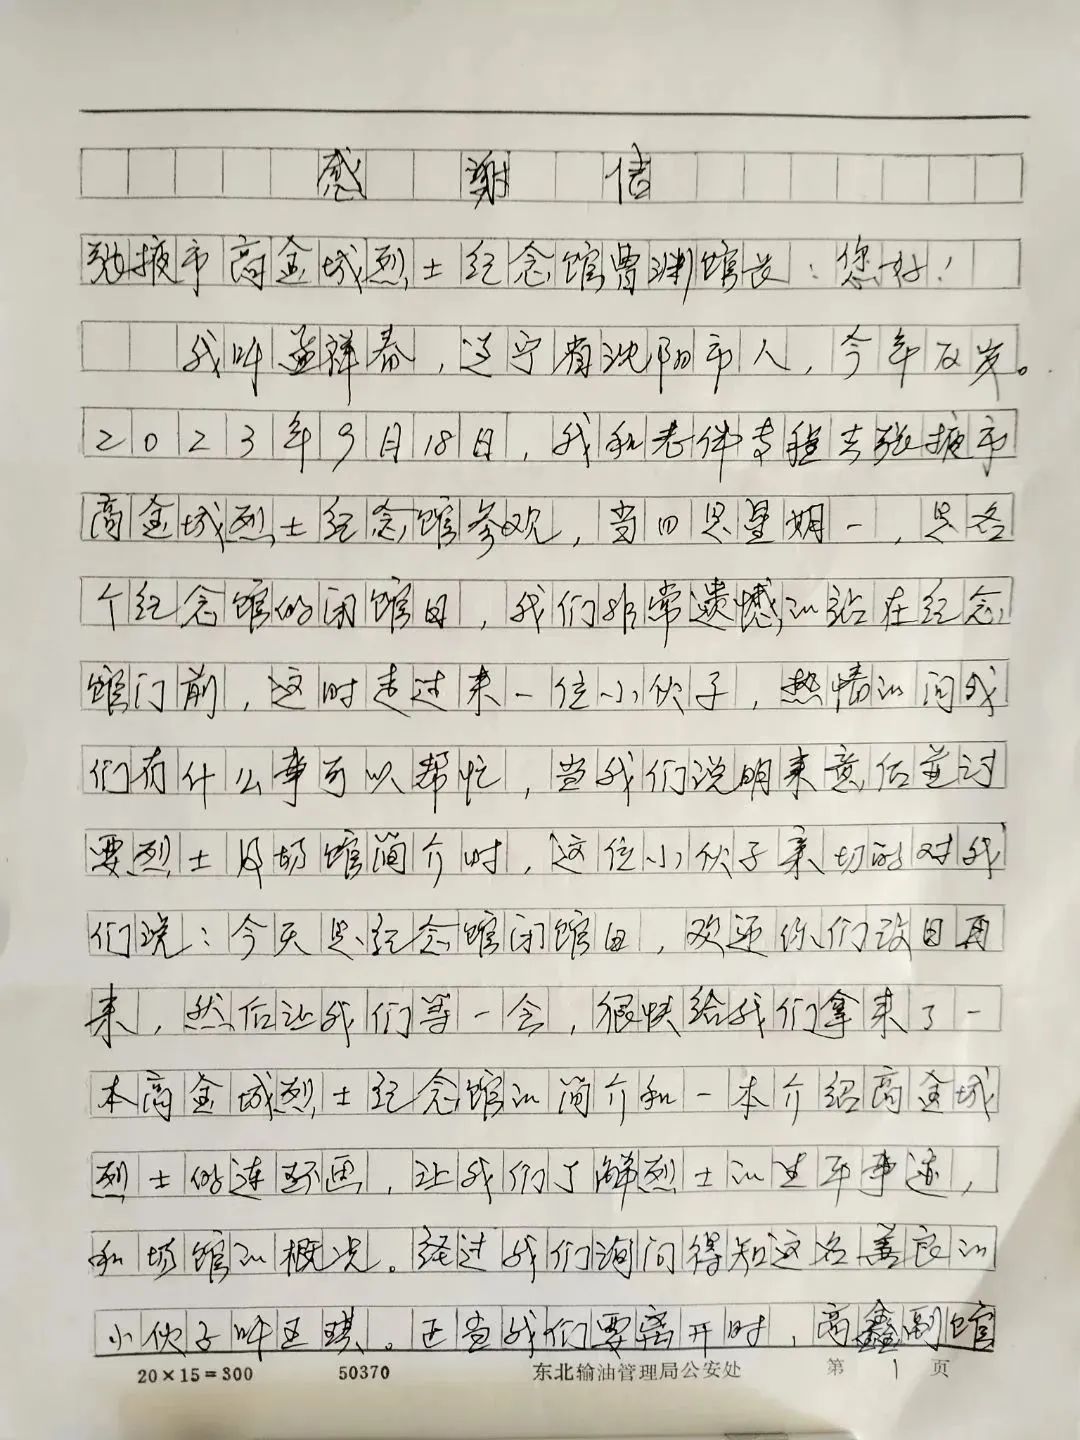 感谢信
张掖市高金城烈士纪念馆曹渊馆长：您好！
我叫孟祥春，辽宁省沈阳市人，今年72岁。
2023年9月18日，我和老伴专程去张掖市
高金城烈士纪念馆参观，当日是星期一，是各
个纪念馆的闭馆日，我们非常遗憾的站在纪念
馆门前，这时走过来一位小伙子，热情的问我
们有什么事可以帮忙，当我们说明来意后并讨
要烈士及场馆简介时，这位小伙子亲切的对我
们说：今天是纪念馆闭馆日，欢迎你们改日再
来，然后让我们等一会，很快给我们拿来了一
本高金城烈士纪念馆的简介和一本介绍高金城
烈士的连环画，让我们了解烈士的生平事迹，
和场馆的概况。经过我们询问得知这名善良的
小伙子叫王琪。正当我们要离开时，高鑫副馆
20×15=300 50370 东北输油管理局公安处 第 1 页